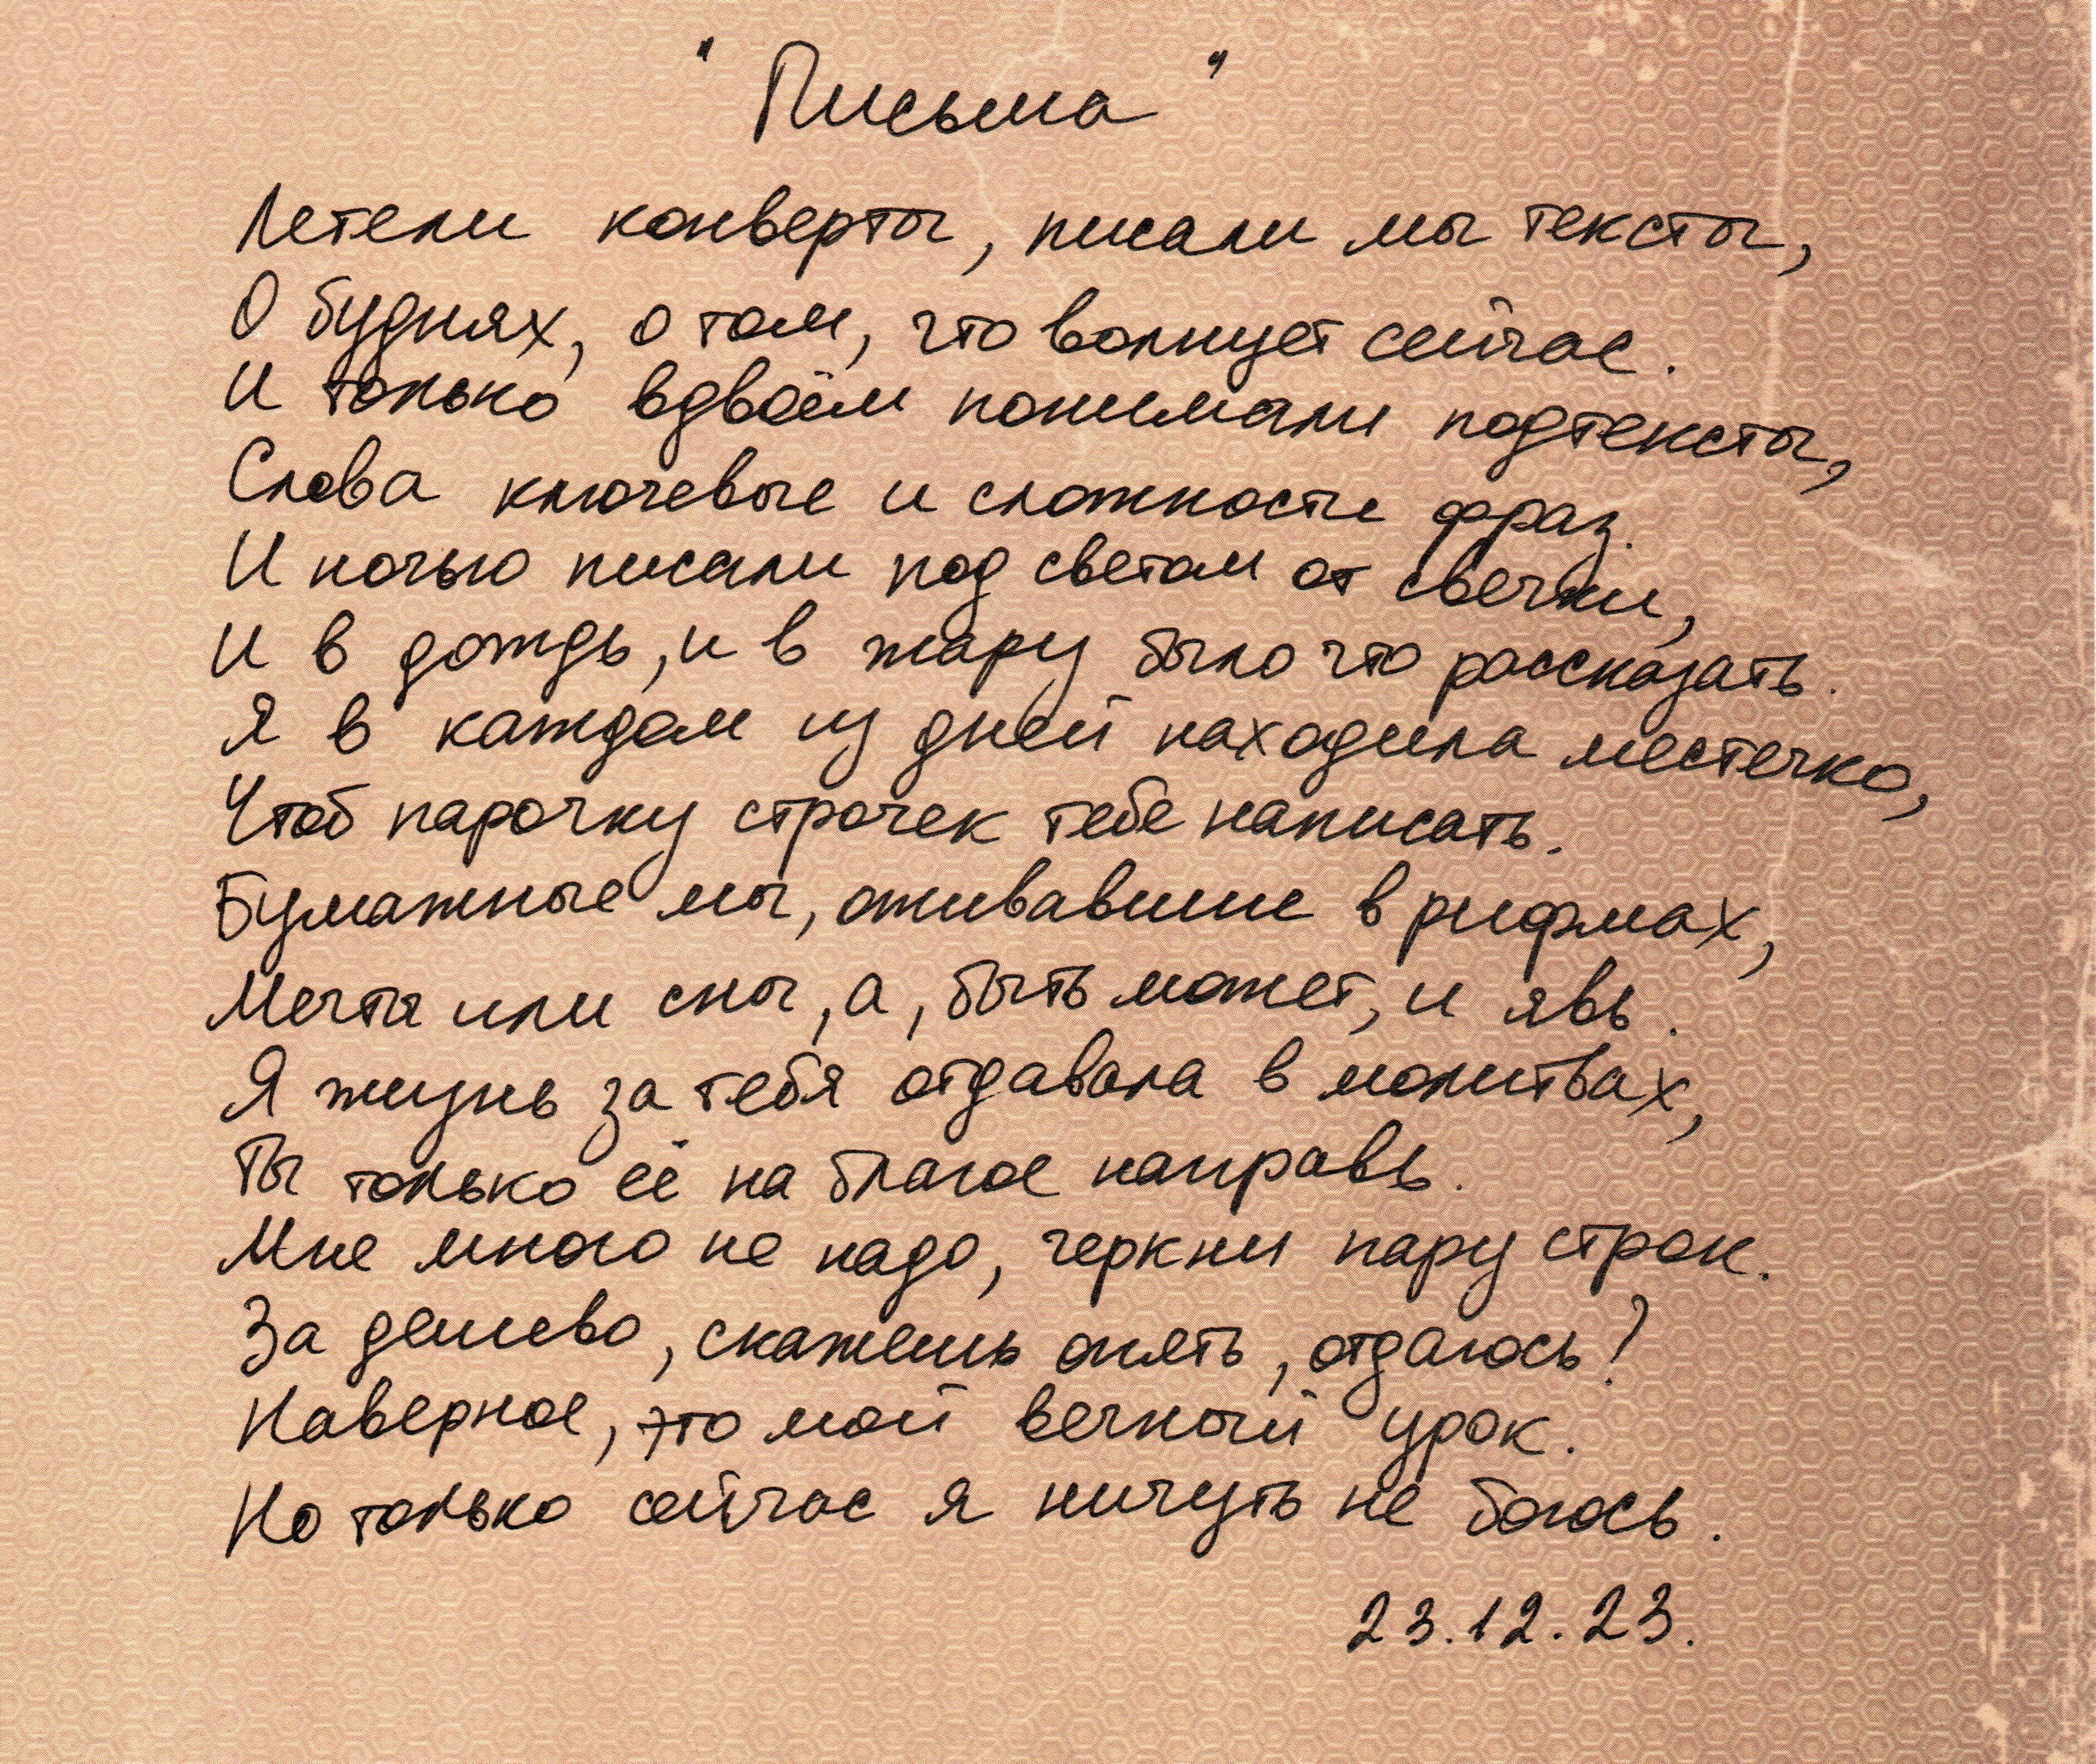 "Письма"
Летели конверты, писали мы тексты,
О буднях, о том, что волнует сейчас.
И только вдвоём понимали подтексты,
Слова ключевые и сложности фраз.
И ночью писали под светом от свечки,
И в дождь, и в жару было что рассказать.
Я в каждом из дней находила местечко,
Чтоб парочку строчек тебе написать.
Бумажные мы, ожившие в рифмах,
Мечты или сны, а, быть может, и явь.
Я жизнь за тебя отдавала в молитвах,
Ты только её на благое направь.
Мне много не надо, черкни пару строк.
За дешево, скажешь опять, отдаюсь?
Наверное, это мой вечный урок.
Но только сейчас я ничуть не боюсь.
23.12.23.